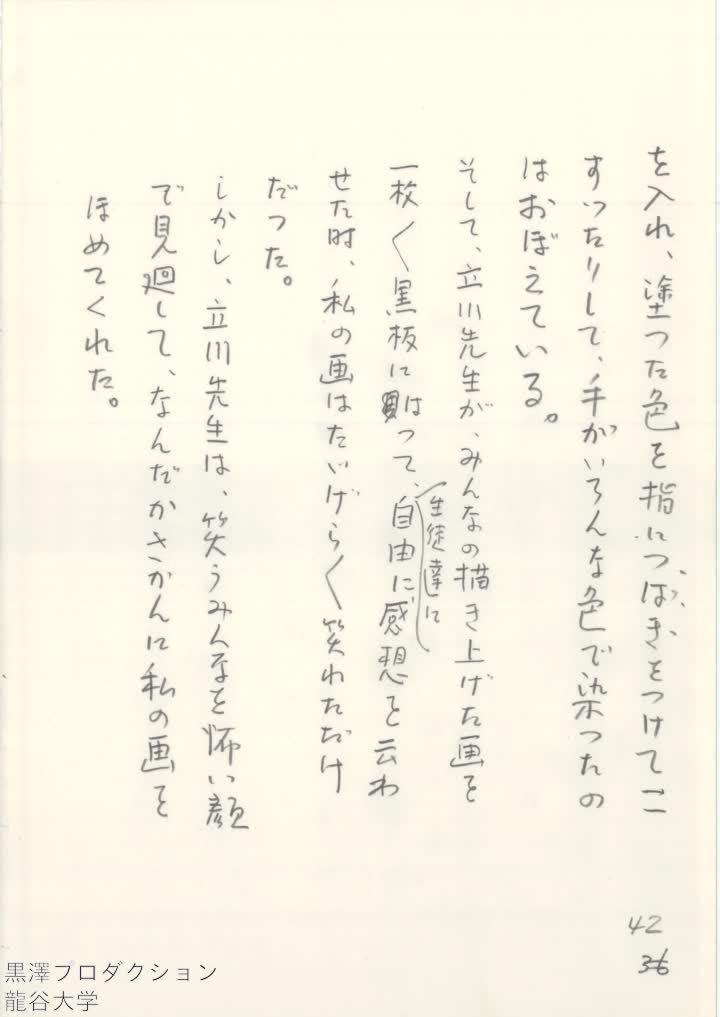 を入れ、塗つた色を指につばきをつけてこ
すつたりして、手がいろんな色で染つたの
はおぼえている。
そして、立川先生が、みんなの描き上げた画を
一枚〱黒板にはつて、生徒達に自由に感想を云わ
せた時、私の画はたいげらく笑われただけ
だつた。
しかし、立川先生は、笑うみんなを怖い顔
で見廻して、なんだかさかんに私の画を
ほめてくれた。
42
36
黒澤プロダクション
龍谷大学